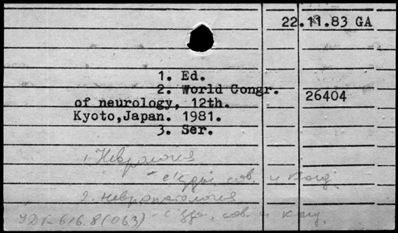 22.11.83 GA
1. Ed.
2. World Congr.
of neurology, 12th.
Kyoto,Japan. 1981.
26404
3. Ser.
1. Неврология
- съезды, сов. и конф.
2. невропатология
УДК-616.8(063) - съезды, сов. и конф.